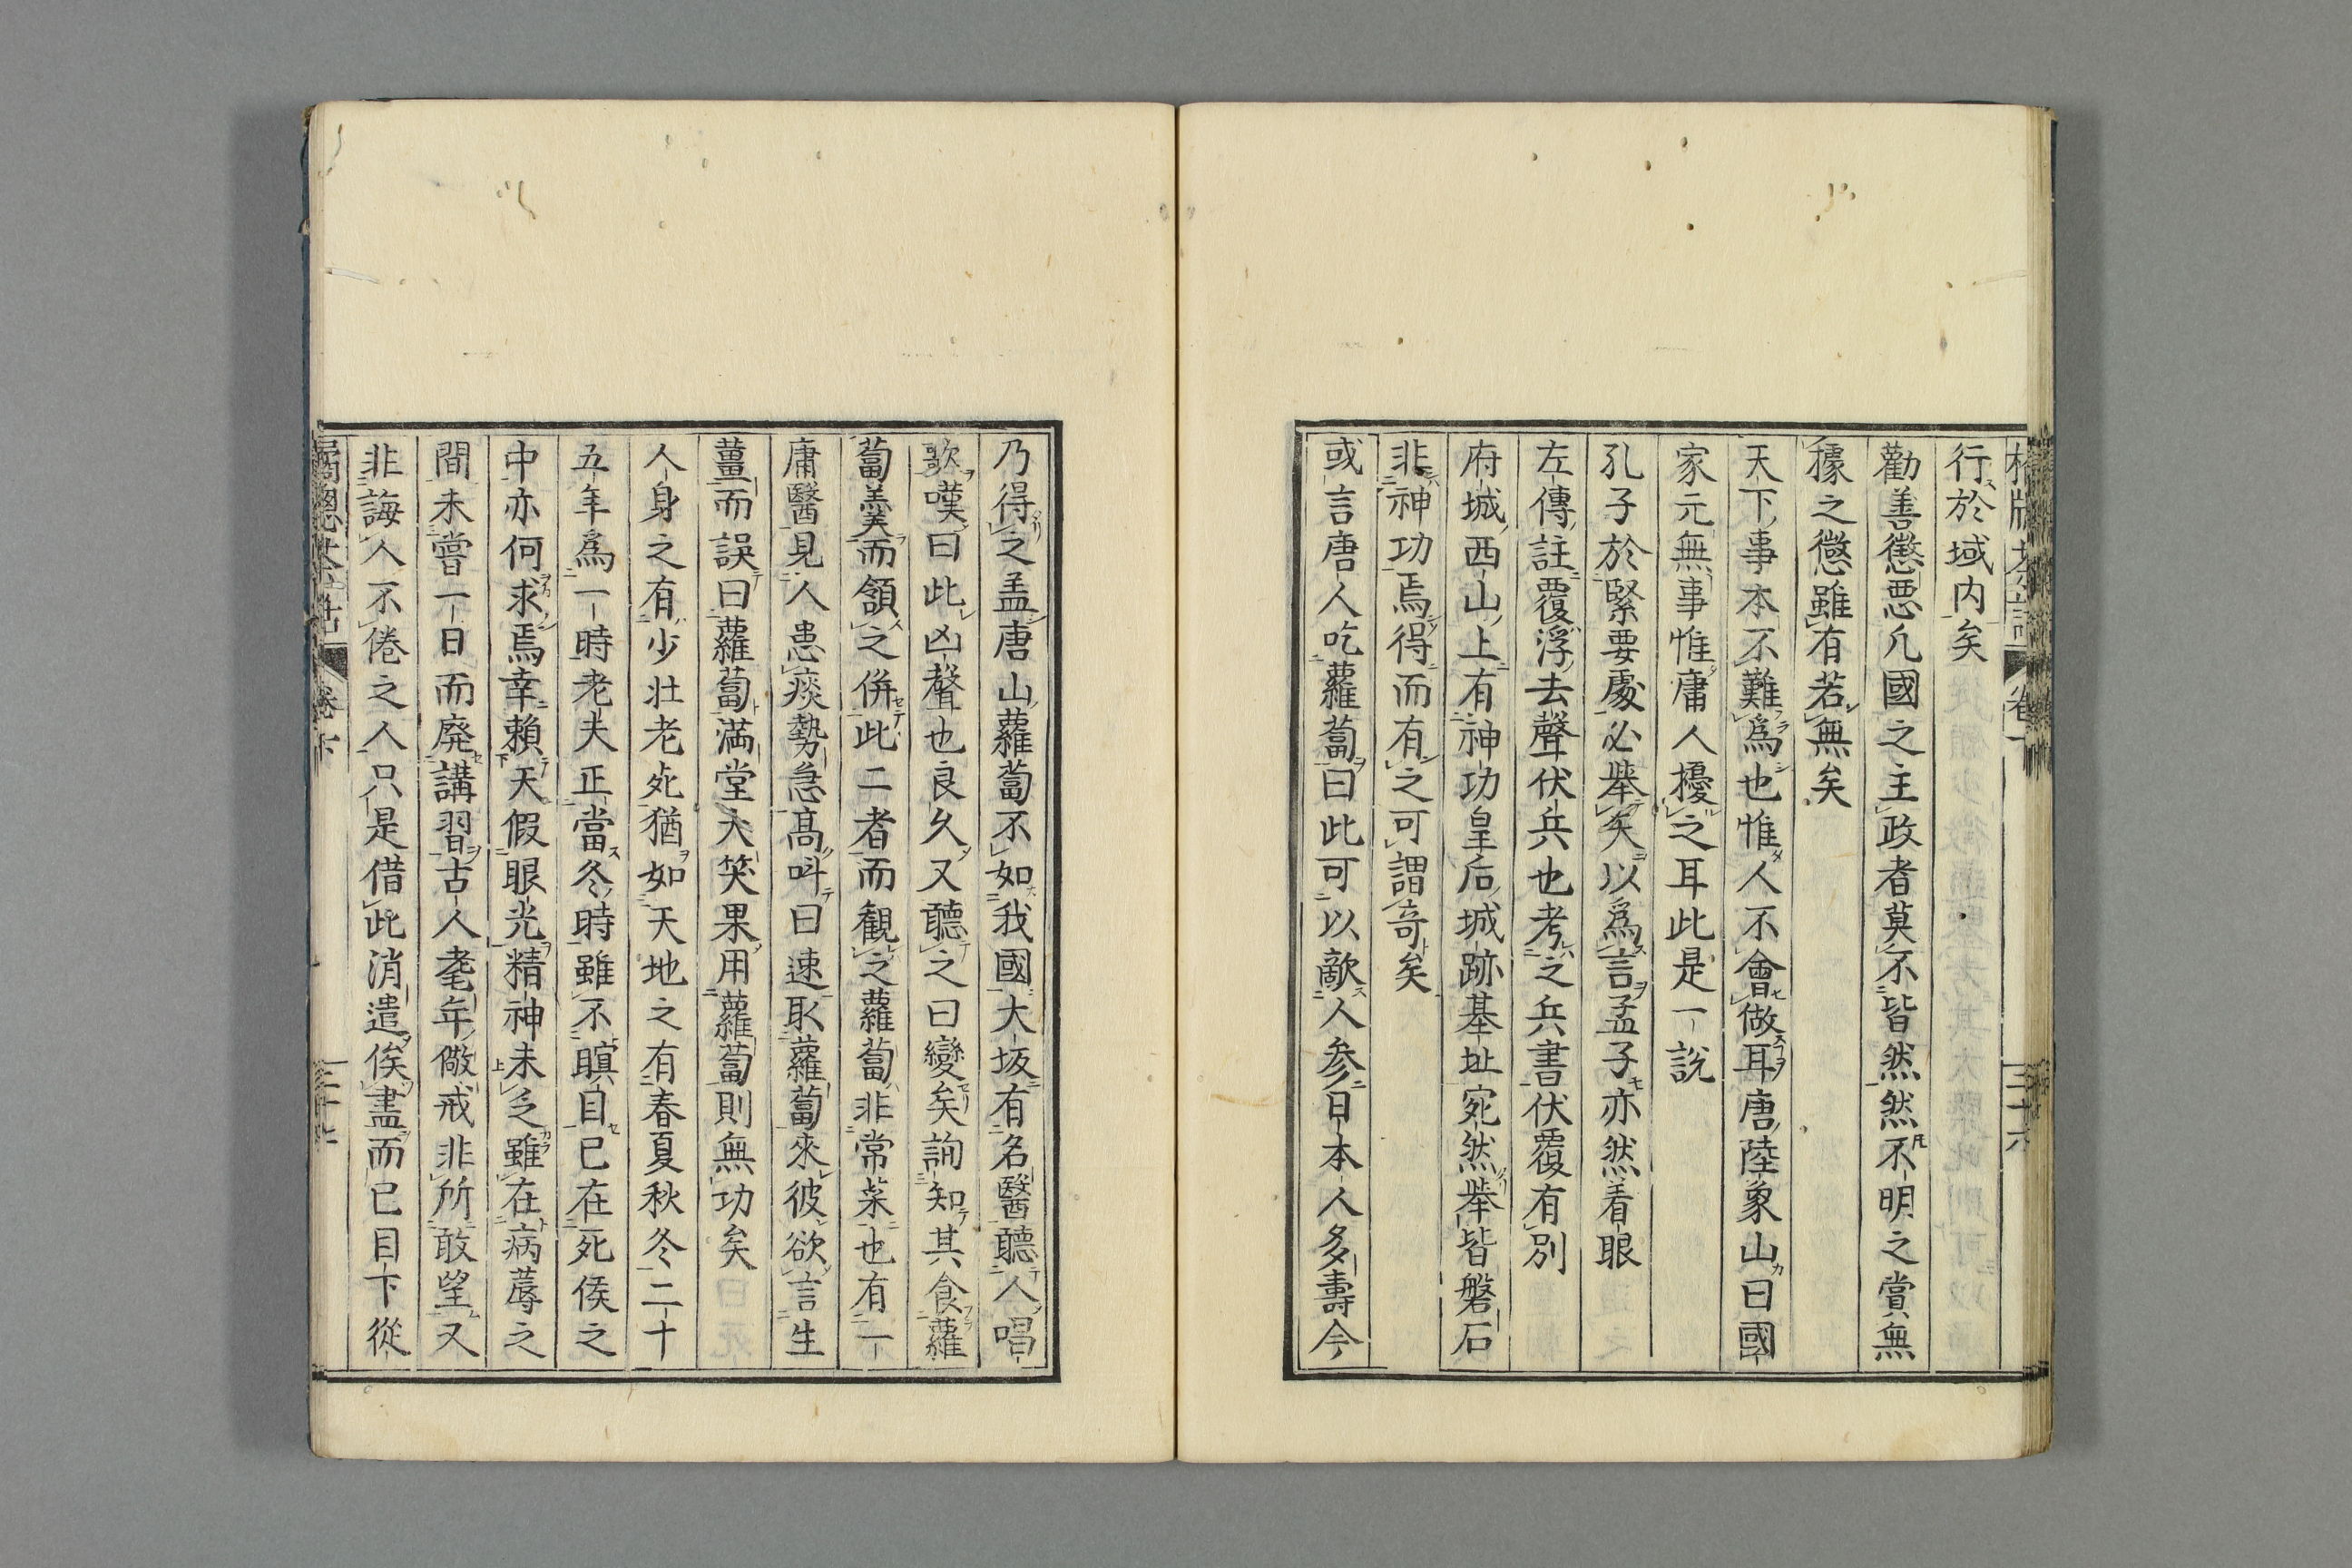 行於域内矣
勸善懲悪凢國之主政者莫不皆然然不明之賞無
據之懲雖有若無矣
天下事本不難爲也惟人不會做耳唐陸象山曰國
家元無事惟庸人擾之耳此是一説
孔子於緊要處必挙矣以爲言孟子亦然着眼
左傳註覆浮去聲伏兵也考之兵書伏覆有別
府城西山上有神功皇后城跡基址宛然挙皆磐石
非神功焉得而有之可謂奇矣
或言唐人吃蘿蔔曰此可以敵人参日本人多壽今
乃得之孟唐山蘿蔔不如我國大坂有名醫聽人唱
歌嘆曰此凶聲也良久又聽之曰變矣詢知其食蘿
蔔羹而頷之併此二者而観之蘿蔔非常菜也有一
庸醫見人患痰勢急髙呌曰速取蘿蔔來彼欲言生
薑而誤曰蘿蔔満堂大笑果用蘿蔔則無功矣
人身之有少壮老死猶如天地之有春夏秋冬二十
五年爲一時老夫正當冬時雖不瞑目已在死侯之
中亦何求焉幸頼天假眼光精神未乏雖在病蓐之
間未嘗一日而廃講習古人耄年儆戒非所敢望又
非誨人不倦之人只是借此消遣俟盡而已目下從
卷下